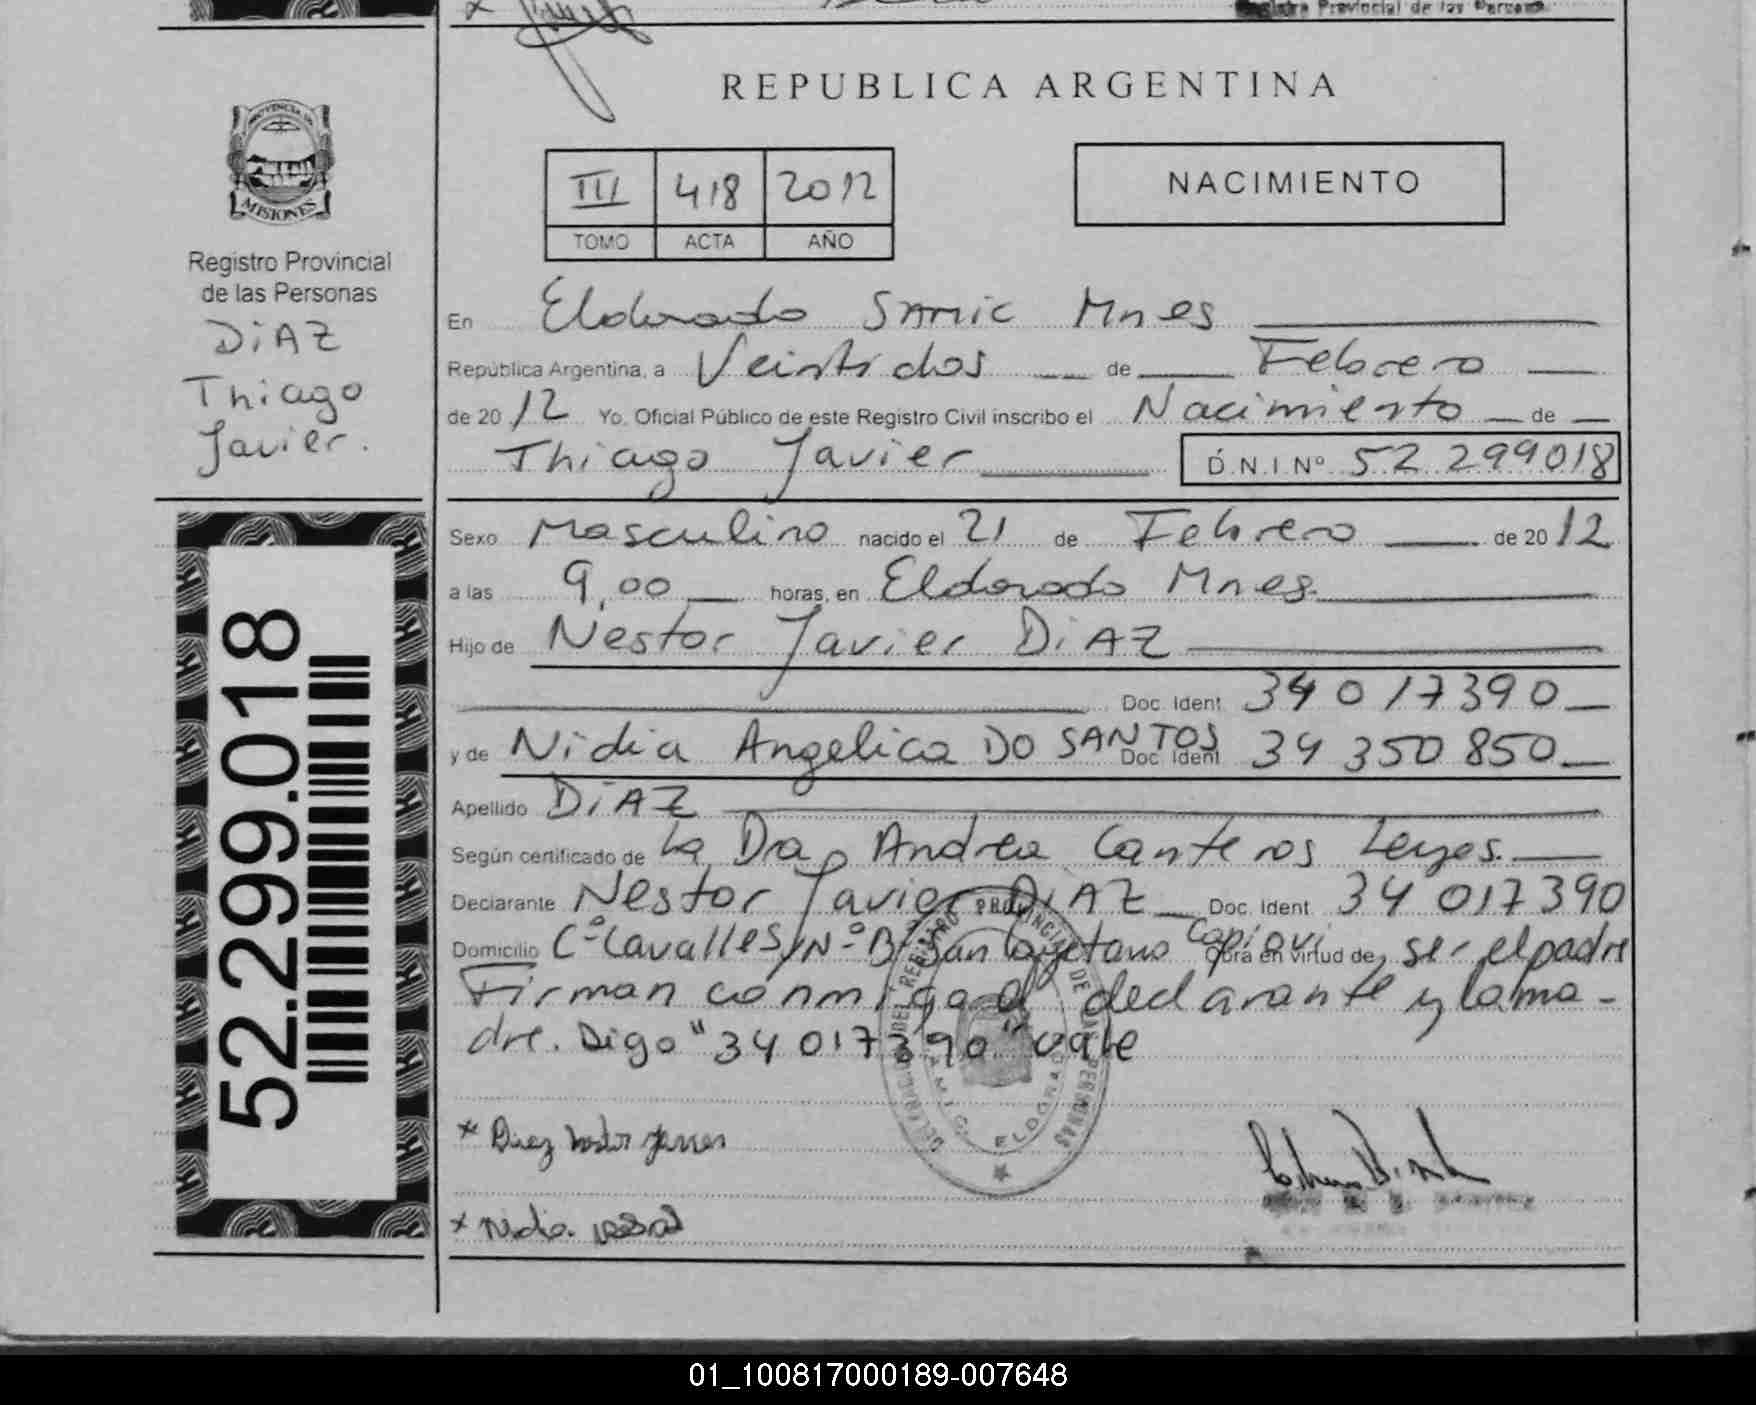 Registro Provincial de las Personas
REPUBLICA ARGENTINA
PROVINCIA DE
MISIONES
Registro Provincial
de las Personas
DiAZ
Thiago
Javier.
52.299.018
III 418 2012
TOMO ACTA AÑO
NACIMIENTO
En Eldorado SAMIC Mnes
República Argentina, a Veintidos de Febrero
de 2012 Yo, Oficial Público de este Registro Civil inscribo el Nacimiento de
Thiago Javier D.N.I Nº 52 299018
Sexo Masculino nacido el 21 de Febrero de 2012
a las 9,00 horas, en Eldorado Mnes.
Hijo de Nestor Javier DiAZ
Doc. Ident 34 017390
y de Nidia Angelica DO SANTOS Doc. Ident 34 350 850
Apellido DiAZ
Según certificado de La Dra Andrea Canteros Leyes.
Declarante Nestor Javier DiAZ Doc. Ident 34 017390
Domicilio Cº Lavalle S/Nº Bº San Cayetano Capiovi Obra en virtud de ser el padre
Firman conmigo el declarante y la ma-
dre. Digo "34 017390" vale
REGISTRO PROVINCIAL DE LAS PERSONAS
ELDORADO
* Diaz Nestor Javier
* Nidia
01_100817000189-007648